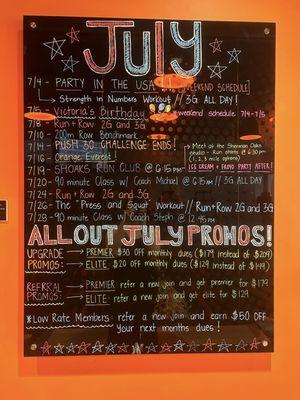 JULY
7/4 - PARTY IN THE USA [WEEKEND SCHEDULE]
Strength in Numbers Workout // 3G ALL DAY!
7/5 - Victoria's Birthday weekend schedule 7/4-7/5
7/8 - Run + Row 2G and 3G
7/10 - 200m Row Benchmark
7/14 - PUSH 30 CHALLENGE ENDS!
7/16 - Orange Everest
7/19 - SHOAKS RUN CLUB @ 6:15 PM
Meet at the Sherman Oaks studio - Run starts @ 6:30 PM
(1, 2, 3 mile options)
ICE CREAM + PROMO PARTY AFTER!
7/20 - 90 minute Class w/ Coach Michael @ 6:15 AM // 3G ALL DAY
7/24 - Run + Row 2G and 3G
7/26 - The "Press and Squat" Workout // Run + Row 2G and 3G
7/28 - 90 minute Class w/ Coach Steph @ 2:45 PM
ALL OUT JULY PROMOS!
UPGRADE PROMOS:
PREMIER $30 OFF monthly dues ($179 instead of $209)
ELITE $20 OFF monthly dues ($129 instead of $149)
REFERRAL PROMOS:
PREMIER: refer a new join and get premier for $179
ELITE: refer a new join and get elite for $129
*Low Rate Members: refer a new join and earn $50 OFF
Your next months dues!